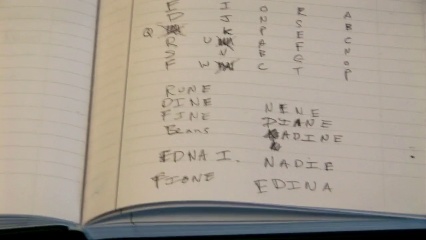 E I O R A
D J N S B
Q K P E C
R U A F N
S V E G O
F W C T P
RUNE
DINE
FINE
Evans
EDNA I.
FIONE
NINE
DIANE
NADINE
NADIE
EDINA